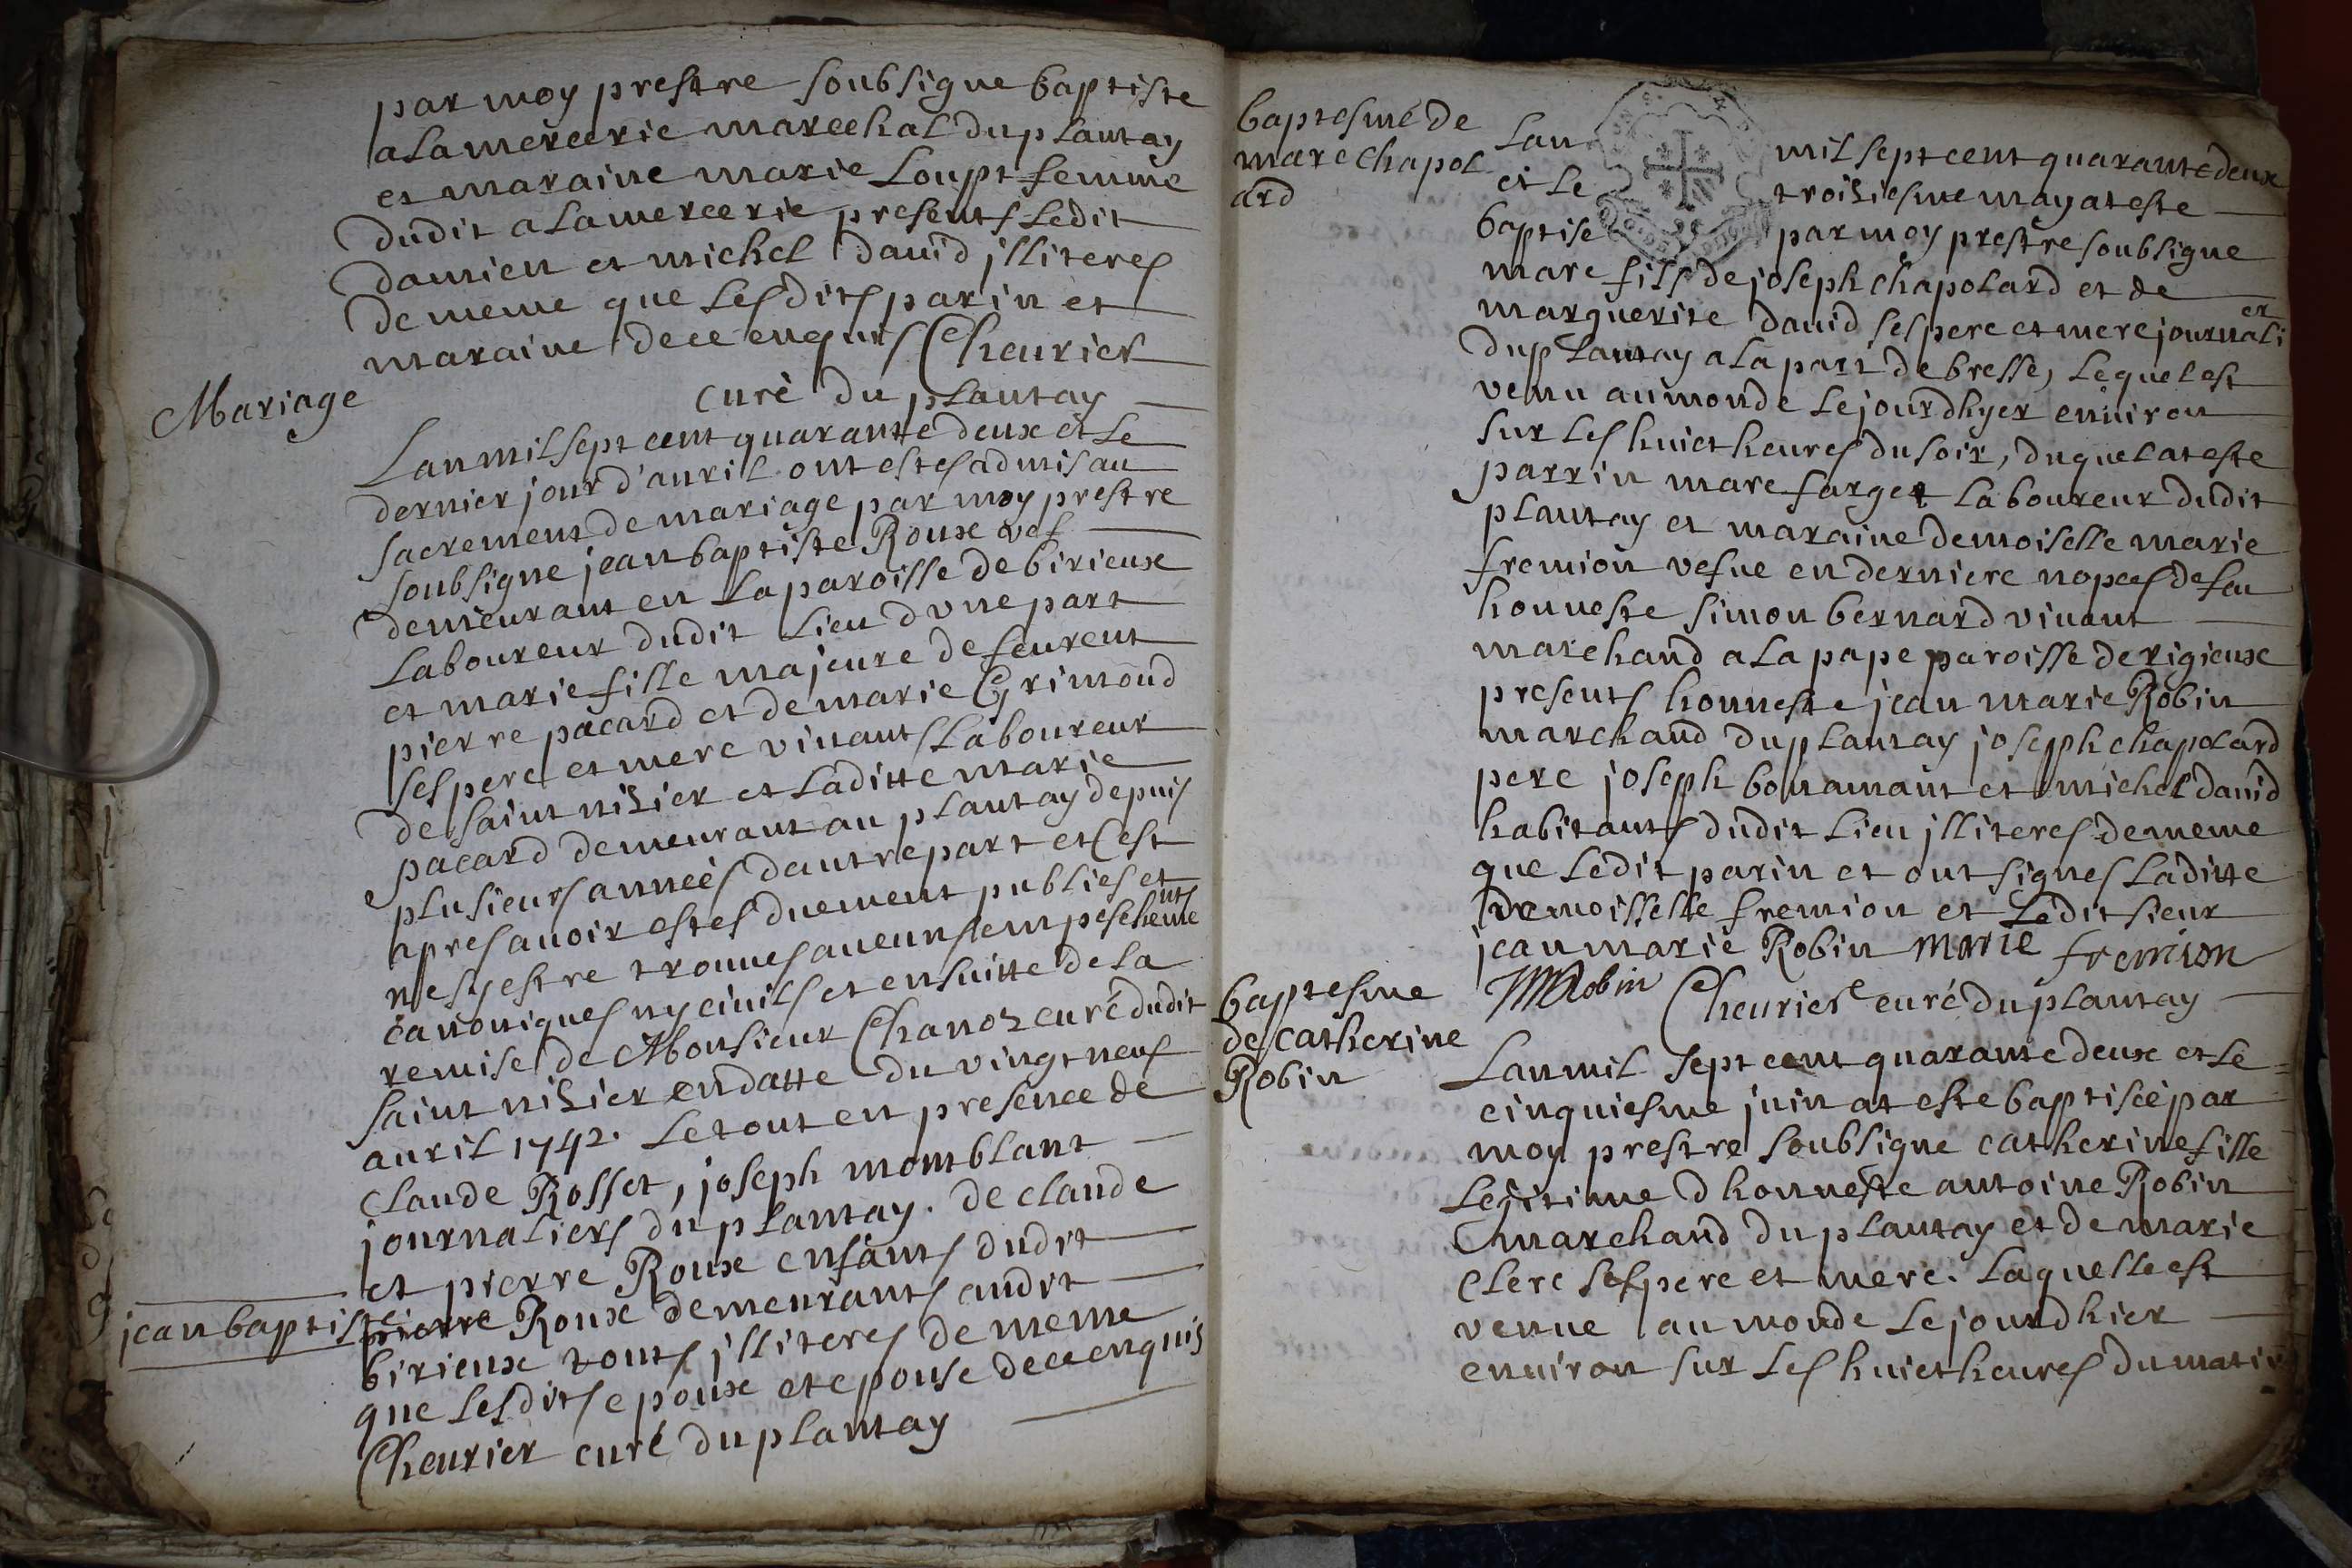 par moy prestre soubsigne baptiste
alamercerie marechal du plantay
et maraine marie Loupt femme
dudit alamercerie presents Ledit
damien et michel dauid jlliteres
de meme que Lesdits parin et
maraine de ce enquis Cheurier
curé du plantay
Mariage
Lan mil sept cent quarante deux et Le
dernier jour d'auril ont estes admis au
sacrement de mariage par moy prestre
soubsigne jean baptiste Roux vef
demeurant en La paroisse de birieux
Laboureur dudit Lieu dvne part
et marie fille majeure de feurent
pierre pacard et de marie Grimoud
ses pere et mere viuants Laboureur
de saint nisier et Laditte marie
pacard demeurant au plantay depuis
plusieurs années dautre part et C'est
apres auoir estes duement publies et
ne sy estre trounes aucuns empeschements
canoniques ny ciuils et ensuitte de La
remise de Monsieur Chanoz curé dudit
saint nisier en datte du vingt neuf
auril 1742. Le tout en presence de
Claude Rosset, joseph momblant
journaliers du plantay. de claude
et pierre Roux enfants dudit
jean baptiste
pierre Roux demeurants audit
birieux touts jlliteres de meme
que Lesdits epoux et epouse de ce enquis
Cheurier curé du plantay
baptesme de
marc Chapol
ard
Lan mil sept cent quarante deux
et Le troisiesme may at este
baptise par moy prestre soubsigne
marc fils de joseph chapolard et de
marguerite dauid ses pere et mere journalier
du plantay a La part de bresse, Lequel est
venu au monde Le jourdhyer enuiron
sur Les huict heures du soir, duquel at este
parrin marc farget Laboureur dudit
plantay et maraine demoiselle marie
fremion vefue en derniere nopces de feu
honneste simon bernard viuant
marchand a La pape paroisse de rigieux
presents honneste jean marie Robin
marchand du plantay joseph chapolard
pere joseph bonamant et michel dauid
habitants dudit Lieu jlliteres de meme
que Ledit parin et ont signes Laditte
demoisselle fremion et Ledit sieur
jean marie Robin marie fremion
JMRobin Cheurier curé du plantay
baptesme
de Catherine
Robin
Lan mil sept cent quarante deux et Le
cinquiesme juin at este baptisée par
moy prestre soubsigne catherine fille
Legitime d honneste antoine Robin
marchand du plantay et de marie
Clerc ses pere et mere. Laquelle est
venue au monde Le jourdhier
enuiron sur Les huict heures du matin